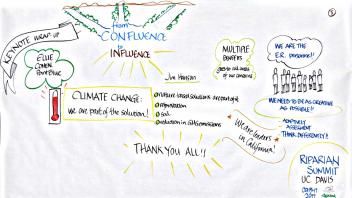 KEYNOTE WRAP-UP
from
CONFLUENCE
to
INFLUENCE
ELLIE
COHEN
POINT BLUE
MULTIPLE
BENEFITS
WE ARE THE
E.R. personnel!
CLIMATE CHANGE:
We are part of the solution!
nature-based solutions are part of it
soil
reduction in GHG emissions
WE NEED TO BE AS CREATIVE
AS POSSIBLE!!
ADAPTIVELY
ASSESSMENT
THINK DIFFERENTLY!
We are leaders
in California!
THANK YOU ALL!!
RIPARIAN
SUMMIT
UC DAVIS
2017